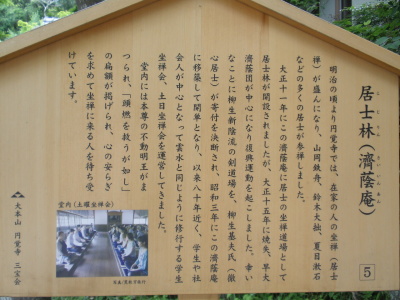 居士林(済蔭庵)
5
明治の頃より円覚寺では、在家の人の坐禅(居士
禅)が盛んになり、山岡鉄舟、鈴木大拙、夏目漱石
などの多くの居士が参禅しました。
大正十一年にこの済蔭庵に居士の坐禅道場として
居士林が開設されましたが、大正十五年に焼失、早大
済蔭団が中心になり復興運動を起こしました。幸い
なことに柳生新陰流の剣道場を、柳生基夫氏(徹
心居士)が寄付を決断され、昭和三年にこの済蔭庵
に移築して開単となり、以来八十年近く、学生や社
会人が中心となって雲水と同じように修行する学生
坐禅会、土日坐禅会を運営してきました。
堂内には本尊の不動明王がま
つられ、「頭燃を救うが如し」
の扁額が掲げられ、心の安らぎ
を求めて坐禅に来る人を待ち受
けています。
堂内(土曜坐禅会)
大本山 円覚寺 三宝会